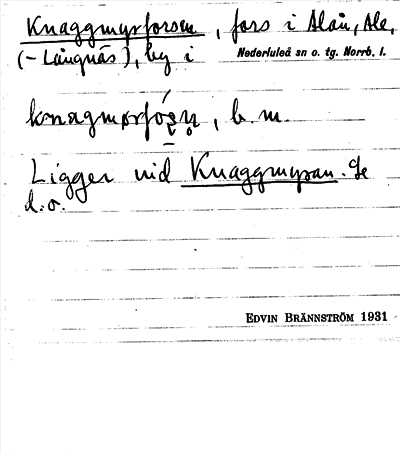 Knaggmyrforsen, fors i Alån, Ale,
(- Långnäs), by i Nederluleå sn o. tg. Norrb. l.
b. m.
Ligger vid Knaggmyran. Se
d. o.
EDVIN BRÄNNSTRÖM 1931